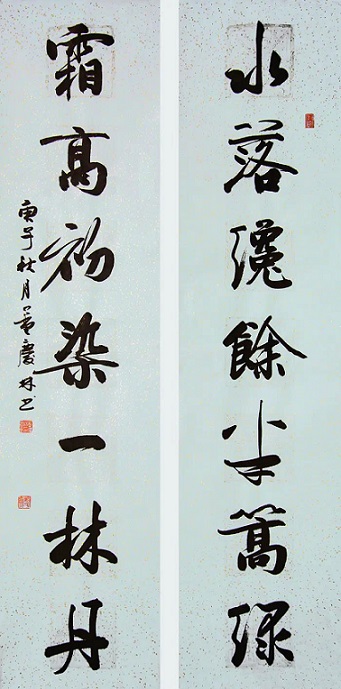 水落濸餘半篙绿
霜高初染一林丹
庚子秋月葛慶林书